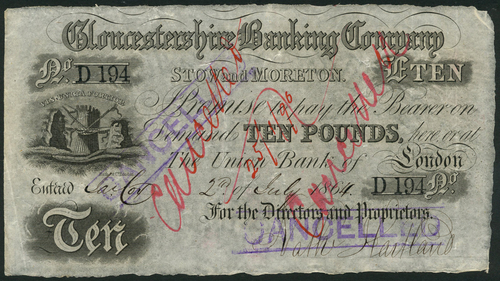 Gloucestershire Banking Company
No. D 194 STOW and MORETON. £ TEN
I Promise to pay the Bearer on
Demand, TEN POUNDS, here or at
The Union Bank of London
Entd 2nd of July 1864 D 194 No.
For the Directors and Proprietors.
Ten
CANCELLED
CANCELLED
Cancelled
Cancelled